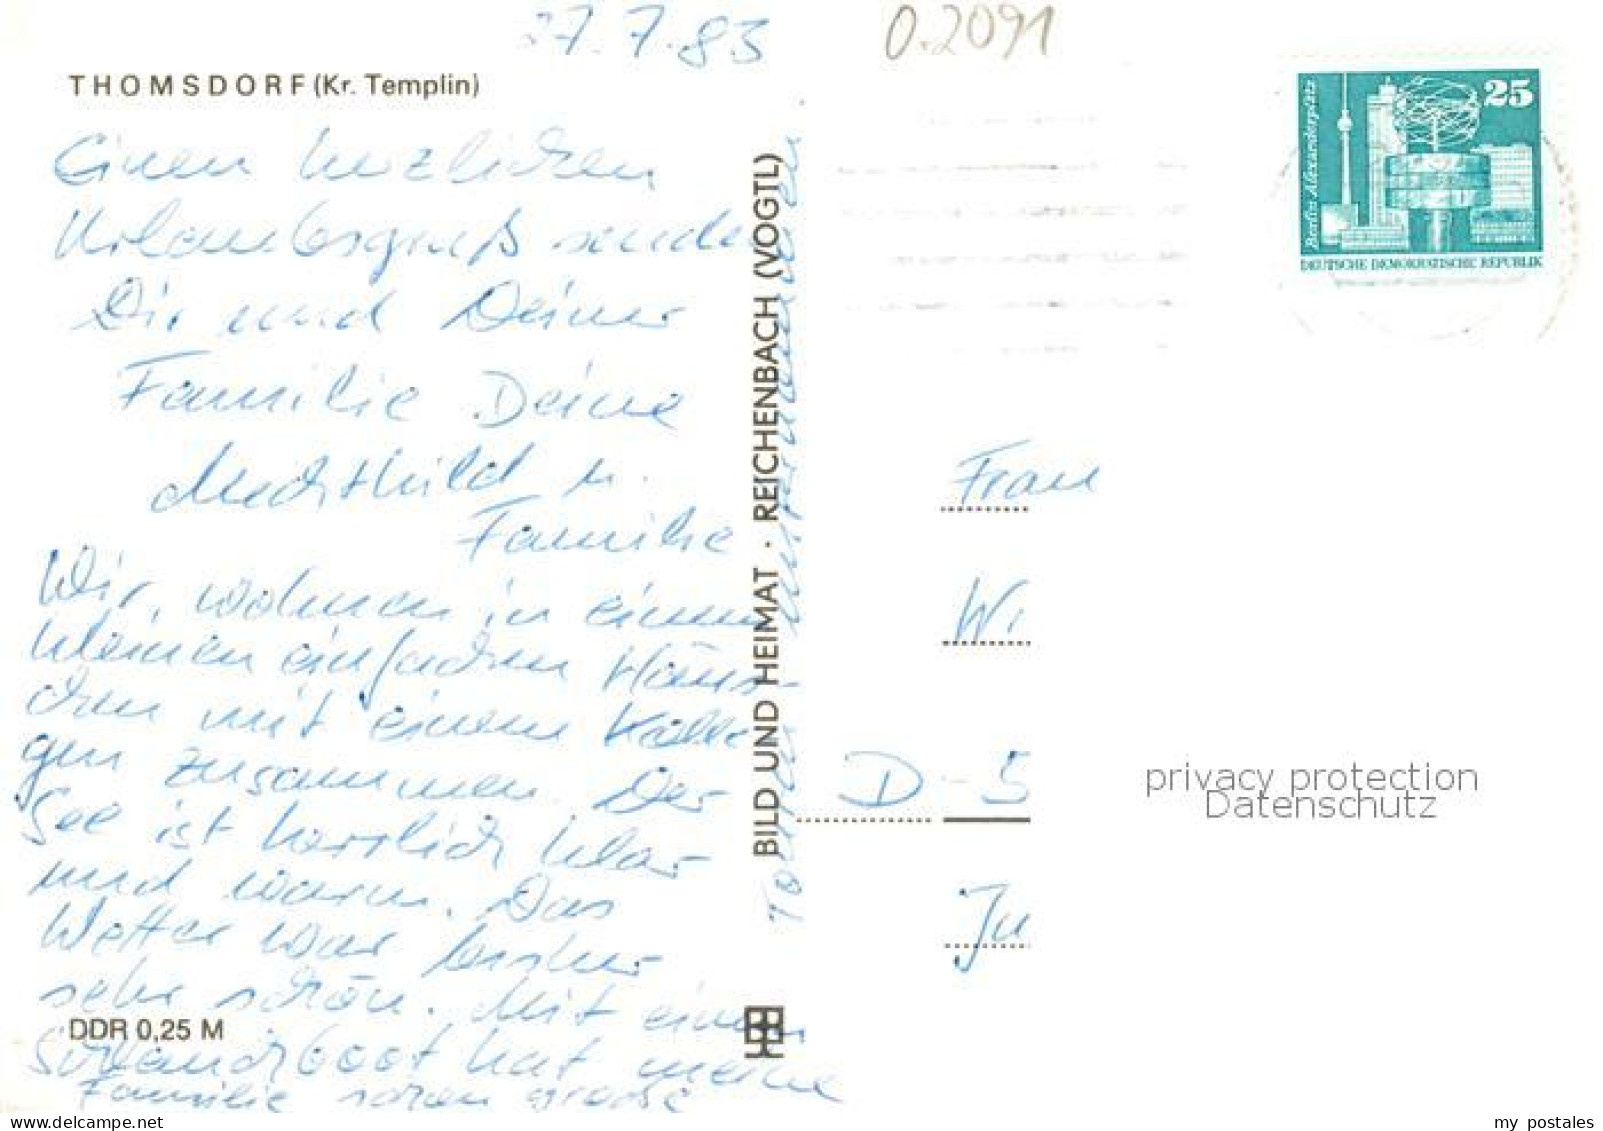 27.7.83
0.2091
THOMSDORF (Kr. Templin)
Einen herzlichen
Urlaubsgruß sendet
Dir und Deiner
Familie Deine
Mechthild u.
Familie
Wir wohnen in einem
kleinen einfachen Häus-
chen mit einem Kolle-
gen zusammen. Der
See ist herrlich klar
und warm. Das
Wetter war bisher
sehr schön. Mit einem
Schlauchboot hat meine
Familie schon große
Touren unternommen
DDR 0,25 M
BILD UND HEIMAT · REICHENBACH (VOGTL)
25
Berlin Alexanderplatz
DEUTSCHE DEMOKRATISCHE REPUBLIK
Frau
Wi
D - 5
Ju
privacy protection
Datenschutz
my postales